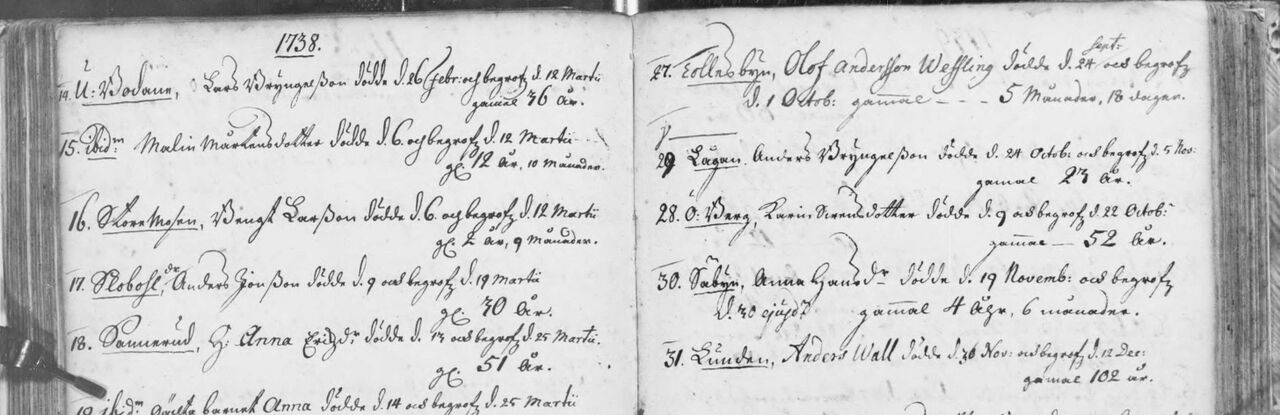 1738.
14. U: Bodane, Lars Bryngelßon dödde d. 26 Febr: och begrofz d. 12 Martii
gamal 36 år.
15. ibidm Malin Mårtensdotter dödde d. 6. och begrofz d. 12 Martii
gl. 12 År, 10 månader.
16. Storemosen, Bengt Larßon dödde d. 6. och begrofz d. 12 Martii
gl. 2 år, 9 månader.
17. Slobohl, dr Anders Jonßon dödde d. 9 och begrofz d. 19 Martii
gl. 30 År.
18. Sannerud, H: Anna Erichzdr dödde d. 13 och begrofz d. 25 Martii.
gl. 51 år.
19. ibidm barnet Anna dödde d. 14 och begrofz d. 25 Martii
27. Tollesbyn, Olof Andersson Wessling dödde d. 24 Sept: och begrofz
d. 1 Octob: gammal - - - 5 Månader, 18 dagar.
29 Lägan. Anders Bryngelßon dödde d. 24 Octob: och begrofz d. 5 Nov:
gamal 23 år.
28. Ö: Berg, Karin Svensdotter dödde d. 9 och begrofz d. 22 Octob:
gammal — 52 År.
30. Säbyn, Anna Hansdr dödde d. 19 Novemb: och begrofz
d. 30 ejusd: gammal 4 Åhr, 6 månader.
31. Lunden, Anders Wall dödde d. 30 Nov: och begrofz d. 12 Dec:
gamal 102 år.